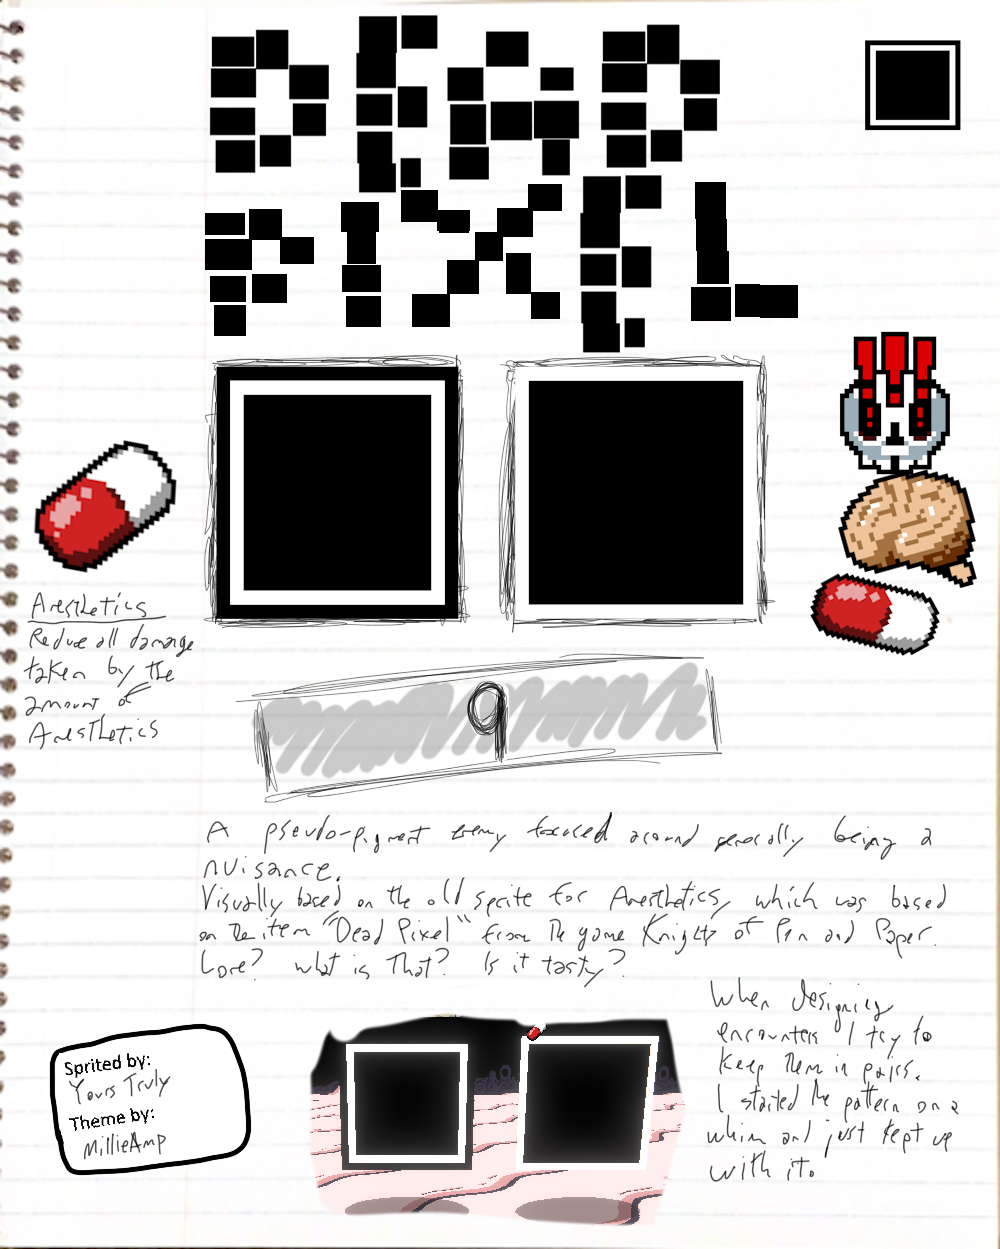 DEAD
PIXEL
Anesthetics
Reduce all damage
taken by the
amount of
Anesthetics
9
A pseudo-pigment enemy focused around generally being a
nuisance.
Visually based on the old sprite for Anesthetics, which was based
on the item "Dead Pixel" from the game Knights of Pen and Paper.
Lore? What is that? Is it tasty?
When designing
encounters I try to
keep them in pairs.
I started the pattern on a
whim and just kept up
with it.
Sprited by:
Yours Truly
Theme by:
MillieAmp